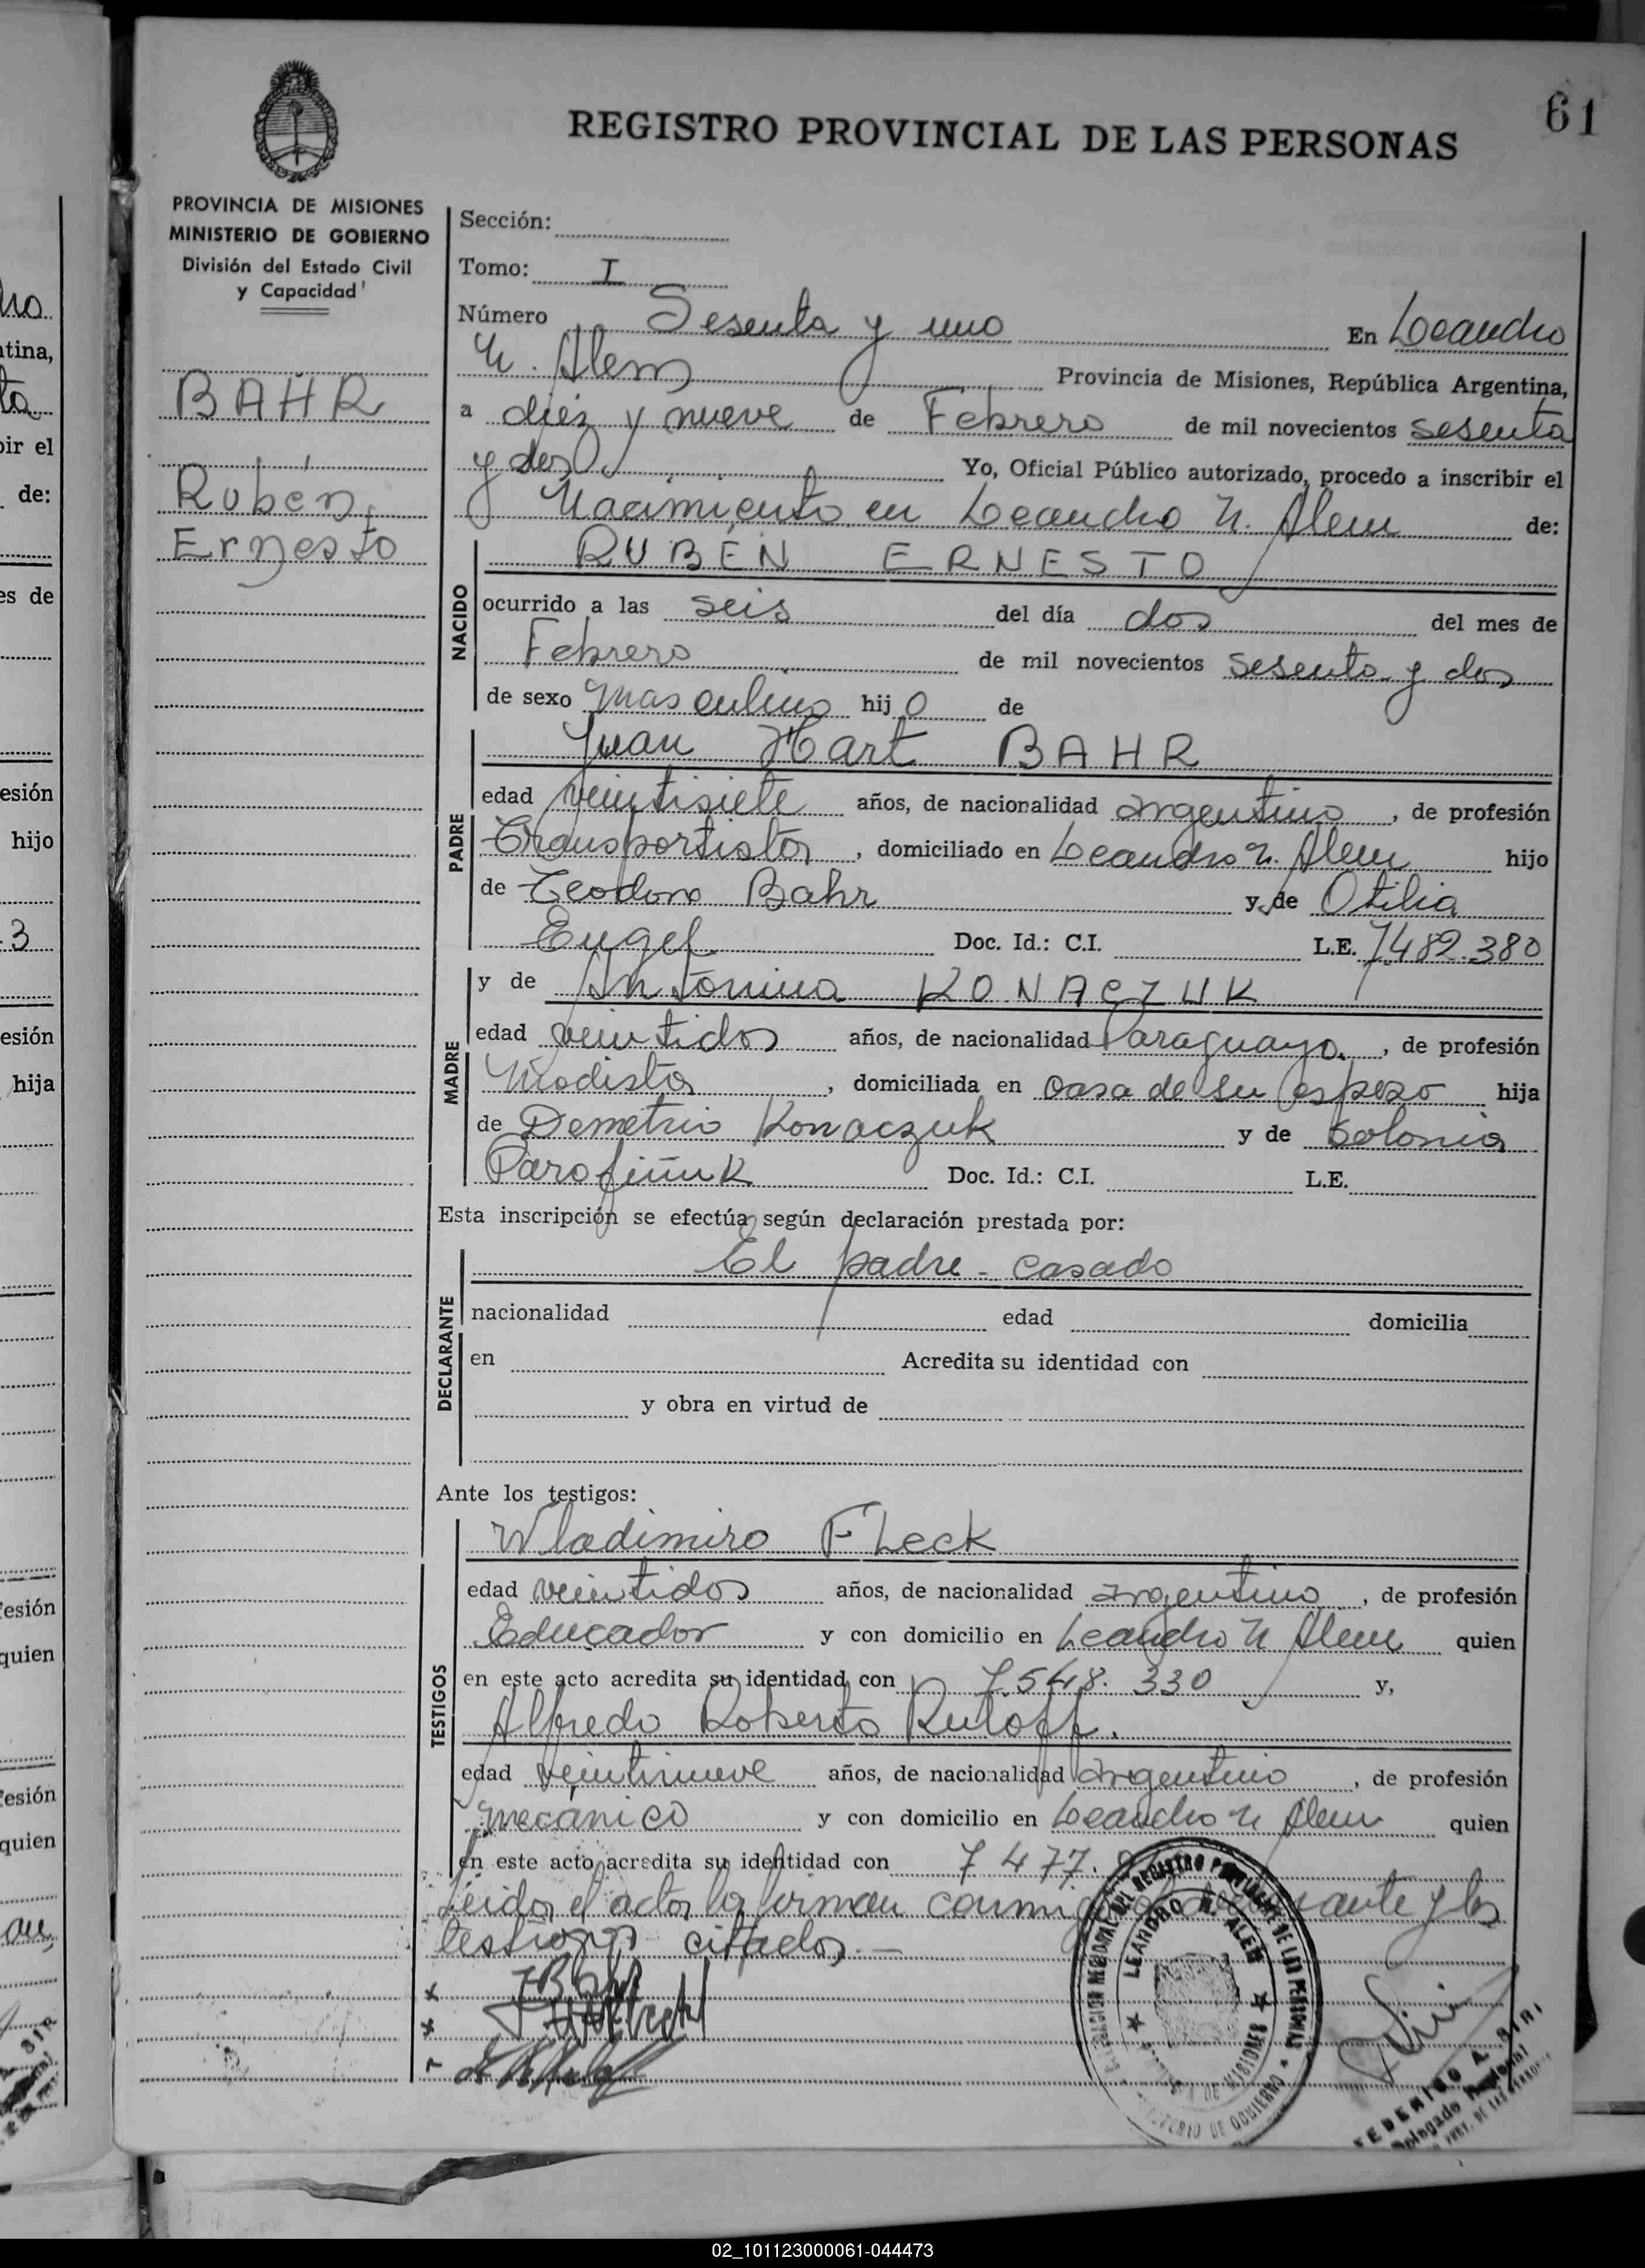 61
REGISTRO PROVINCIAL DE LAS PERSONAS
PROVINCIA DE MISIONES
MINISTERIO DE GOBIERNO
División del Estado Civil
y Capacidad
BAHR
Rubén
Ernesto
Sección:
Tomo: I
Número Sesenta y uno En Leandro
N. Alem Provincia de Misiones, República Argentina,
a diez y nueve de Febrero de mil novecientos sesenta
y dos Yo, Oficial Público autorizado, procedo a inscribir el
Nacimiento en Leandro N. Alem de:
NACIDO
RUBÉN ERNESTO
ocurrido a las seis del día dos del mes de
Febrero de mil novecientos sesenta y dos
de sexo masculino hijo de
PADRE
Juan Hart BAHR
edad veintisiete años, de nacionalidad argentino, de profesión
Transportista, domiciliado en Leandro N. Alem hijo
de Teodoro Bahr y de Otilia
Engel Doc. Id.: C.I. L.E. 7.482.380
MADRE
y de Antonina KONACZUK
edad veintidos años, de nacionalidad Paraguaya, de profesión
Modista, domiciliada en casa de su esposo hija
de Demetrio Konaczuk y de
Doc. Id.: C.I. L.E.
Esta inscripción se efectúa según declaración prestada por:
DECLARANTE
El padre - casado
nacionalidad edad domicilia
en Acredita su identidad con
y obra en virtud de
Ante los testigos:
TESTIGOS
Wladimiro Fleck
edad veintidos años, de nacionalidad argentino, de profesión
Educador y con domicilio en Leandro N Alem quien
en este acto acredita su identidad con 7.548.330 y,
Alfredo Roberto Ruloff.
edad veintinueve años, de nacionalidad argentino, de profesión
mecánico y con domicilio en Leandro N Alem quien
en este acto acredita su identidad con 7 477.
Leida el acta la firman conmigo el declarante y los
testigos citados.—
LEANDRO N. ALEM
FEDERICO A. SIRI
Delegado
02_101123000061-044473